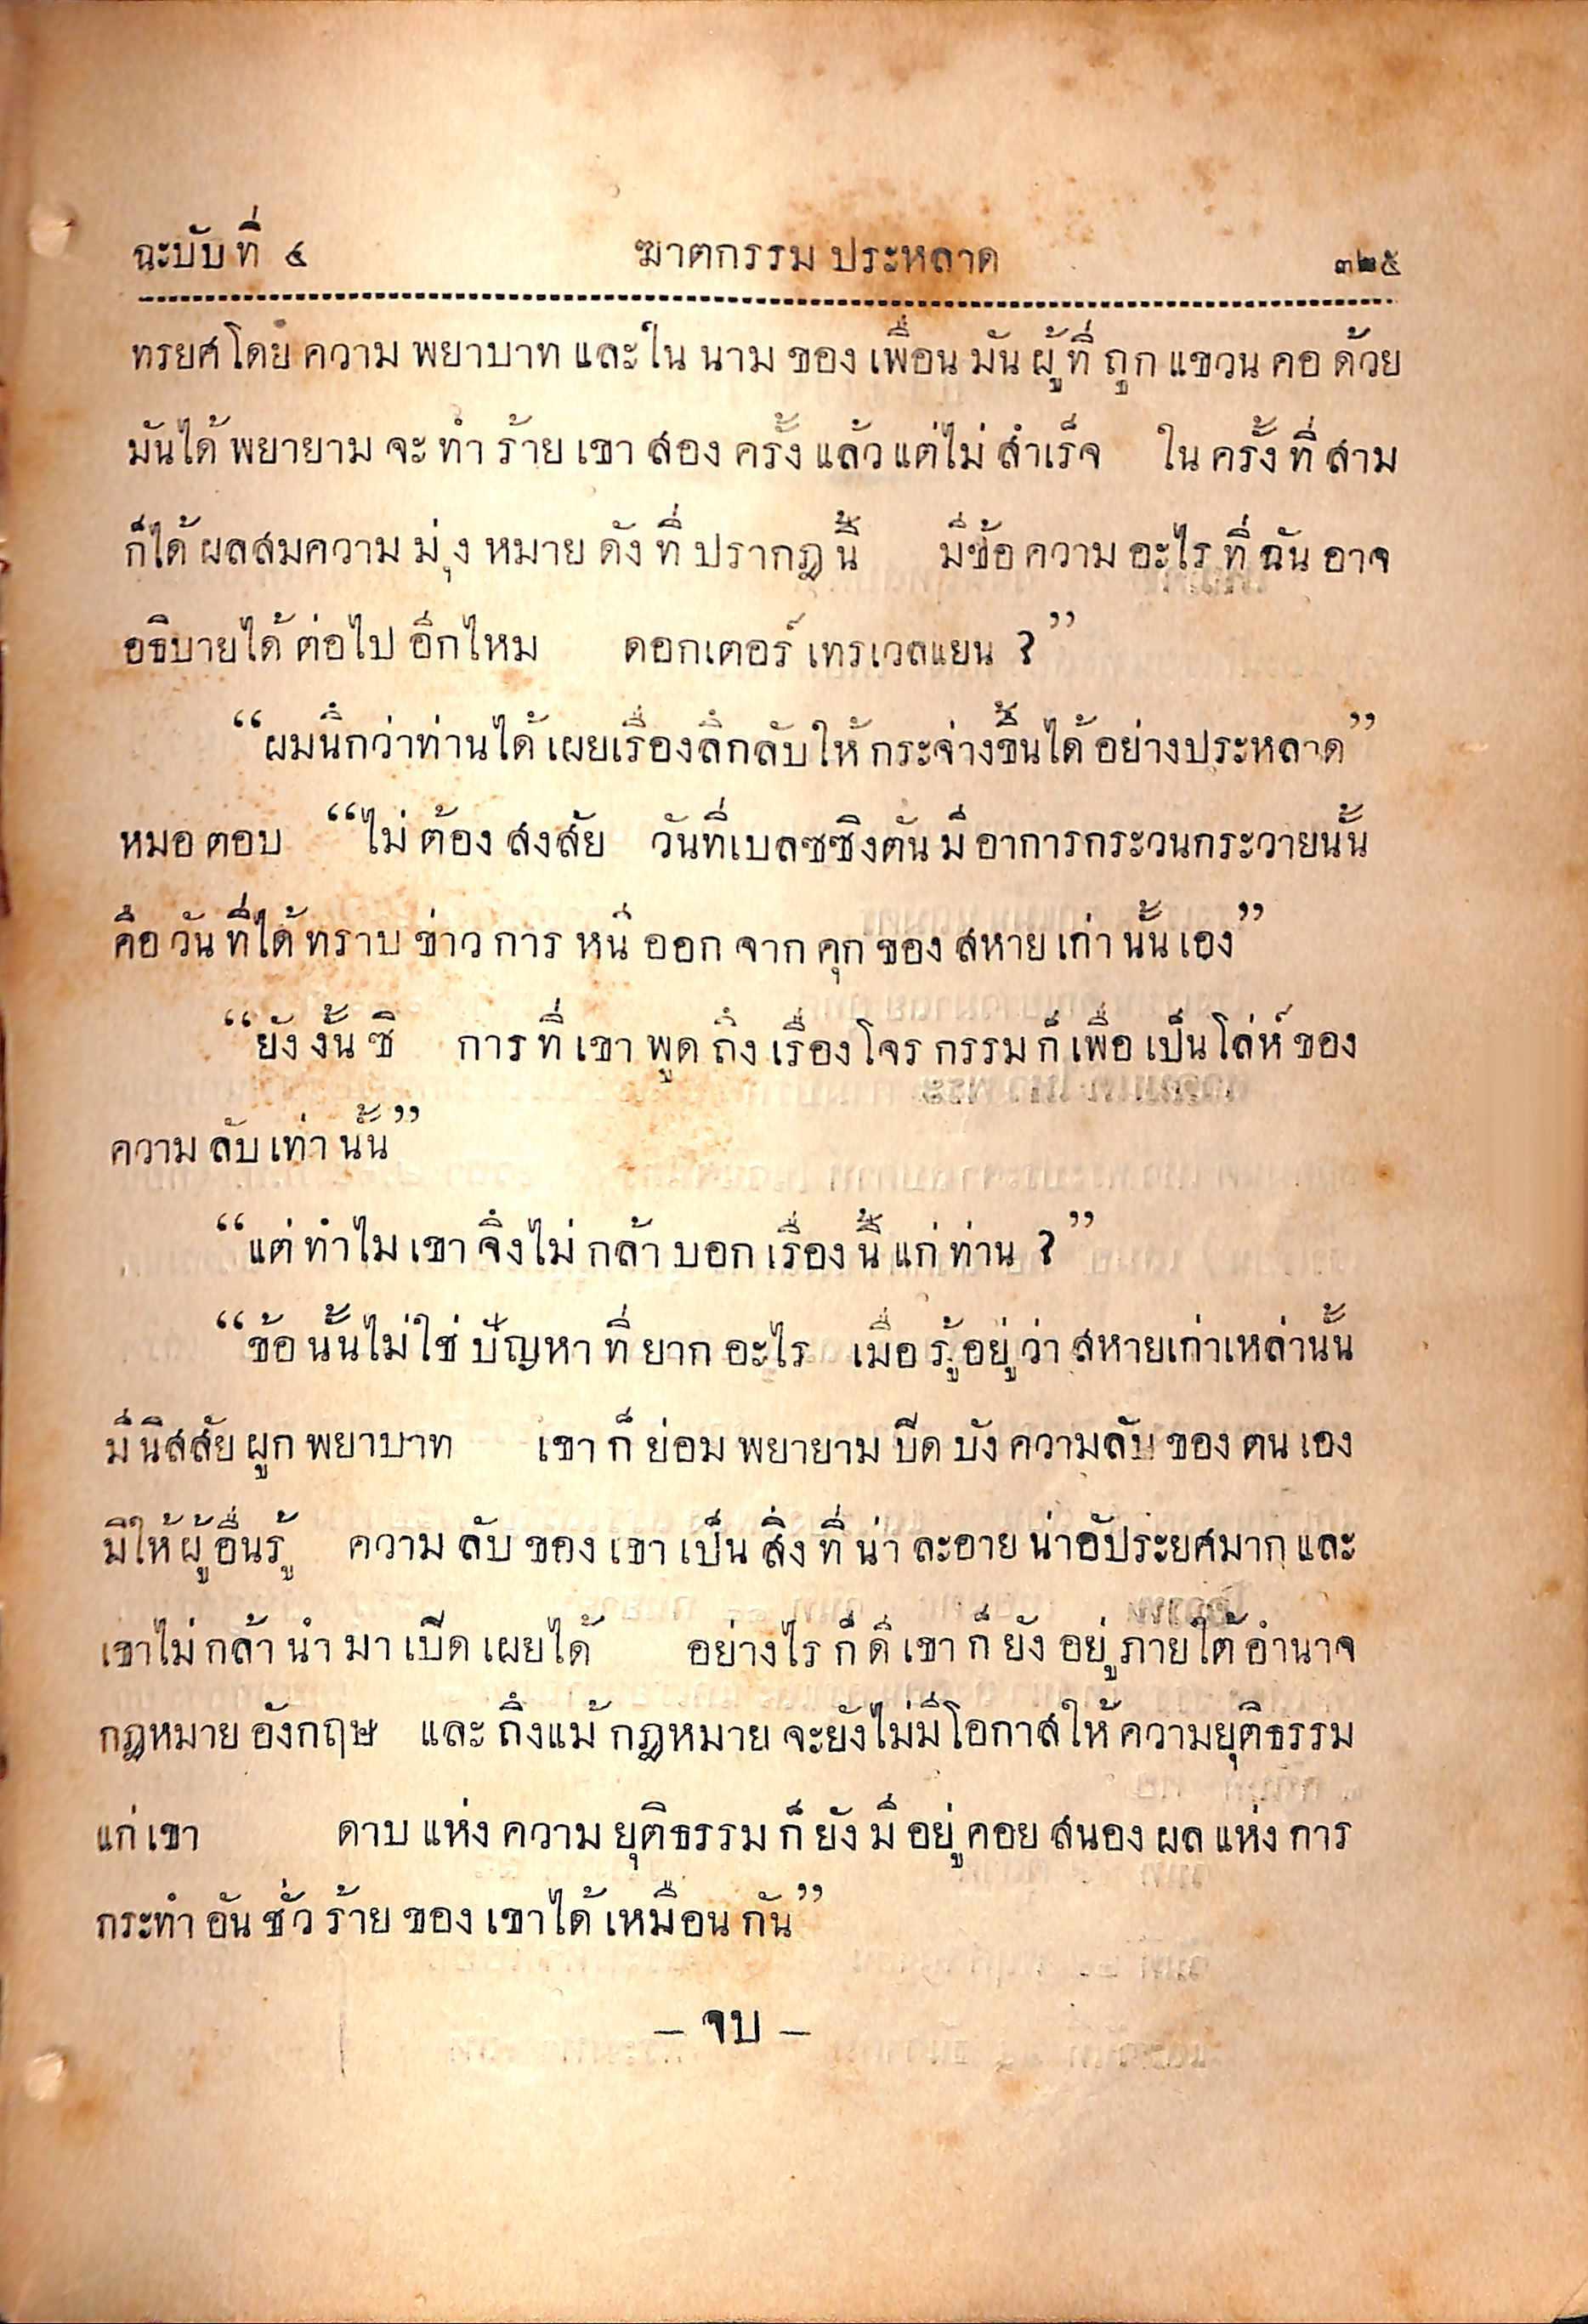 ฉะบับที่ ๔ ฆาตกรรม ประหลาด ๓๒๕
ทรยศโดย ความ พยาบาท และใน นาม ของ เพื่อน มัน ผู้ที่ ถูก แขวน คอ ด้วย
มันได้ พยายาม จะ ทำ ร้าย เขา สอง ครั้ง แล้ว แต่ไม่ สำเร็จ ใน ครั้ง ที่ สาม
ก็ได้ ผลสมความ มุ่ง หมาย ดัง ที่ ปรากฏ นี้ มีข้อ ความ อะไร ที่ ฉัน อาจ
อธิบายได้ ต่อไป อีกไหม ดอกเตอร์ เทรเวลแยน ?”
“ผมนึกว่าท่านได้ เผยเรื่องลึกลับให้ กระจ่างขึ้นได้ อย่างประหลาด”
หมอ ตอบ “ไม่ ต้อง สงสัย วันที่เบลซซิงตัน มี อาการกระวนกระวายนั้น
คือ วัน ที่ได้ ทราบ ข่าว การ หนี ออก จาก คุก ของ สหาย เก่า นั้น เอง”
“ยัง งั้น ซี การ ที่ เขา พูด ถึง เรื่อง โจร กรรม ก็ เพื่อ เป็น โล่ห์ ของ
ความ ลับ เท่า นั้น”
“แต่ ทำไม เขา จึงไม่ กล้า บอก เรื่อง นี้ แก่ ท่าน ?”
“ข้อ นั้นไม่ใช่ ปัญหา ที่ ยาก อะไร เมื่อ รู้อยู่ว่า สหายเก่าเหล่านั้น
มี นิสสัย ผูก พยาบาท เขา ก็ ย่อม พยายาม ปีด บัง ความลับ ของ ตน เอง
มิให้ ผู้อื่นรู้ ความ ลับ ของ เขา เป็น สิ่ง ที่ น่า ละอาย น่าอัประยศมาก และ
เขาไม่ กล้า นำ มา เปีด เผยได้ อย่างไร ก็ ดี เขา ก็ ยัง อยู่ภายใต้ อำนาจ
กฎหมาย อังกฤษ และ ถึงแม้ กฎหมาย จะยังไม่มีโอกาสให้ ความยุติธรรม
แก่ เขา ดาบ แห่ง ความ ยุติธรรม ก็ ยัง มี อยู่ คอย สนอง ผล แห่ง การ
กระทำ อัน ชั่ว ร้าย ของ เขาได้ เหมือน กัน”
— จบ —